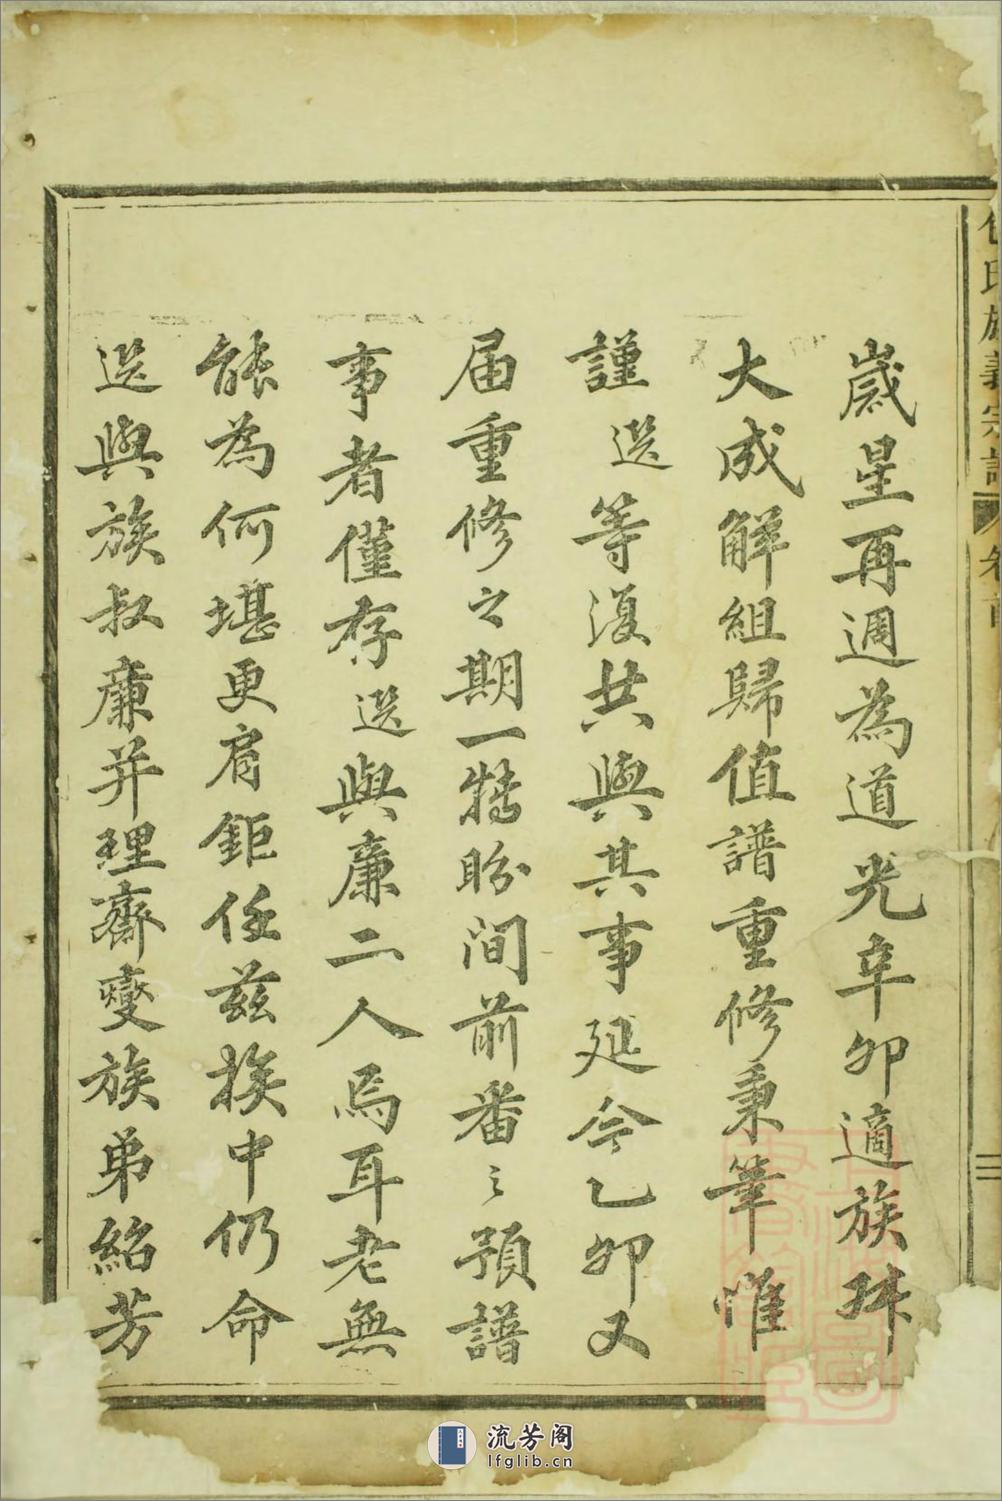 歲星再週為道光辛卯適族
大成解組歸值譜重修秉筆惟
謹選等復共與其事延今乙卯又
届重修之期一轉盼间前番之預譜
事者僅存選與廉二人焉耳老無
能為何堪更肩鉅任兹族中仍命
選與族叔廉并理齋燮族弟紹芳
氏族義宗譜
卷首
三
流芳阁
lfglib.cn